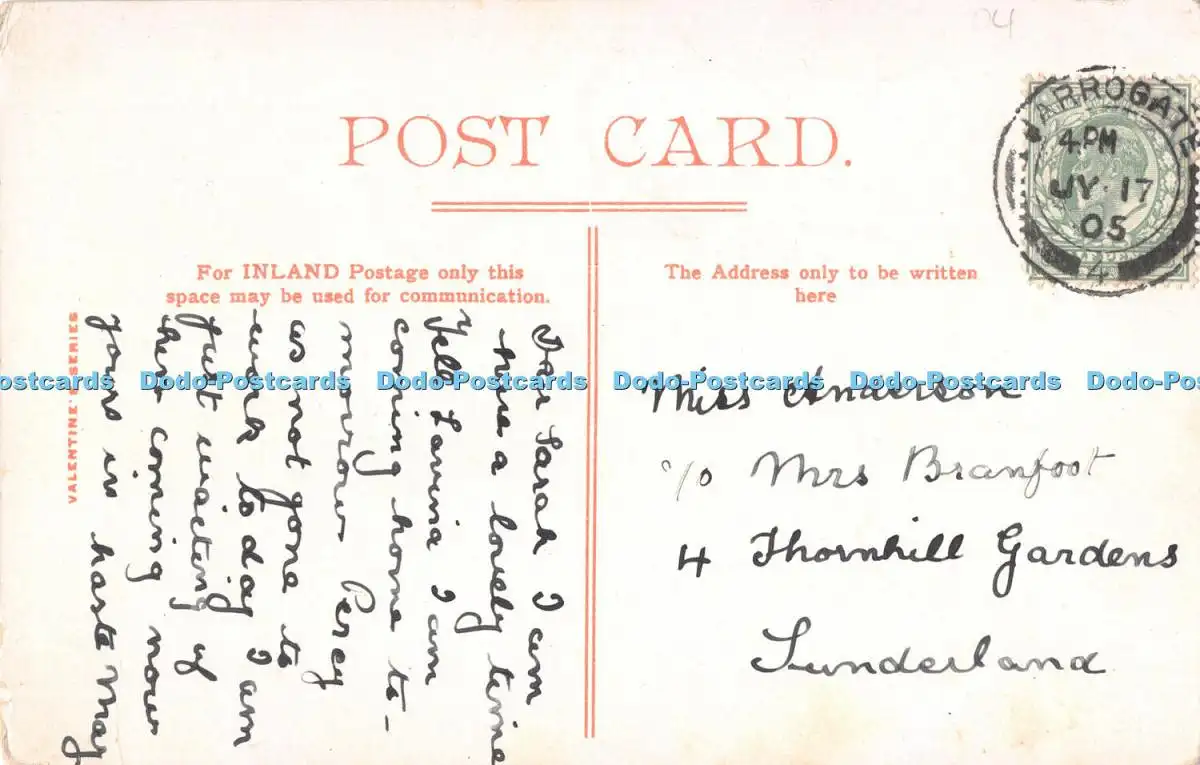 POST CARD.
For INLAND Postage only this
space may be used for communication.
The Address only to be written
here
VALENTINE'S SERIES
ARROGATE
4 PM
JY 17
05
4
Dear Sarah I am
have a lovely time
Yell Lavina I am
coming home to-
morrow Percy
as not gone to
work to day I am
just waiting of
her coming now
yours in haste May
Miss Anderson
c/o Mrs Branfoot
4 Thornhill Gardens
Sunderland
Dodo-Postcards Dodo-Postcards Dodo-Postcards Dodo-Postcards
04